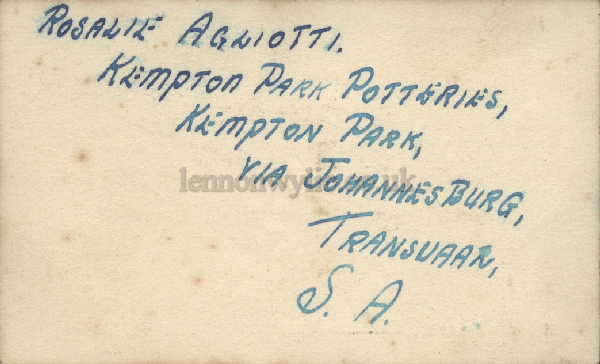 ROSALIE AGLIOTTI.
KEMPTON PARK POTTERIES,
KEMPTON PARK,
VIA JOHANNESBURG,
TRANSVAAL,
S. A.
lennonwylie.co.uk